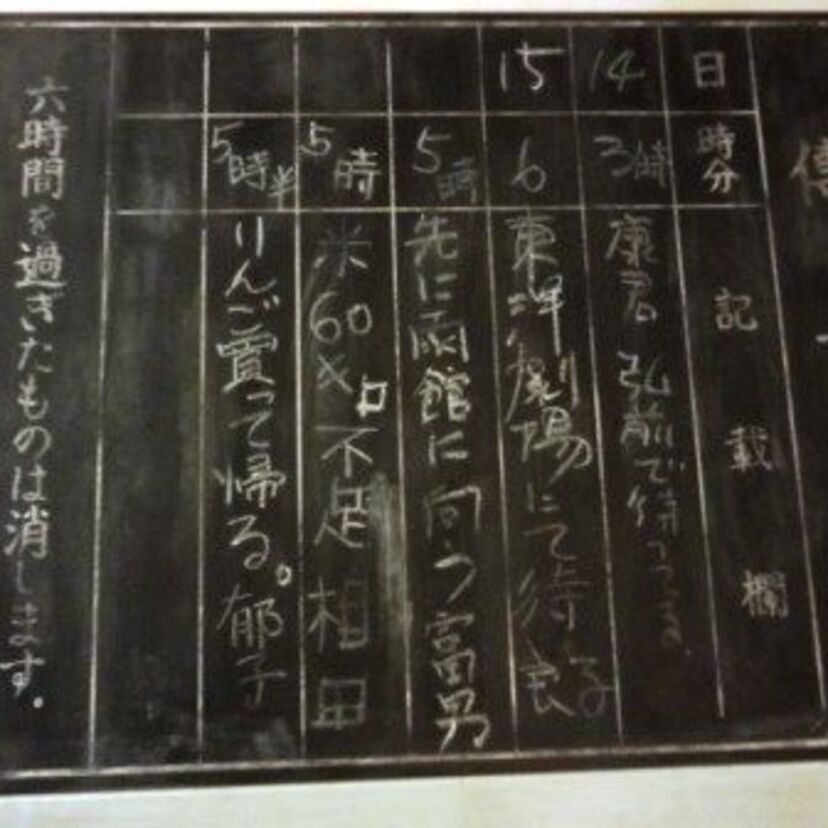 日 時分 記載欄
14 3時 康君 弘前で待ってる
15 6 東洋劇場にて待
5時 先に函館に向う 富男
5時 米60 不足 相田
5時半 りんご買って帰る。郁子
六時間を過ぎたものは消します。